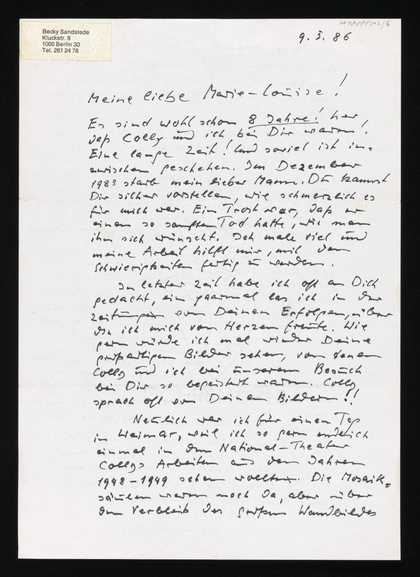 Becky Sandstede
Kluckstr. 8
1000 Berlin 30
Tel. 261 24 78
9. 3. 86
Meine liebe Marie-Louise!
Es sind wohl schon 8 Jahre! her
daß Colly und ich bei Dir waren!
Eine lange Zeit! Und soviel ist in-
zwischen geschehen. Im Dezember
1983 starb mein lieber Mann. Du kannst
Dir sicher vorstellen, wie schmerzlich es
für mich war. Ein Trost war, daß er
einen so sanften Tod hatte, wie man
ihn sich wünscht. Ich male viel und
meine Arbeit hilft mir, mit den
Schwierigkeiten fertig zu werden.
In letzter Zeit habe ich oft an Dich
gedacht, ein paarmal las ich in der
Zeitungen von Deinen Erfolgen, über
die ich mich von Herzen freute. Wie
gern würde ich mal wieder Deine
großartigen Bilder sehen, von denen
Colly und ich bei unserem Besuch
bei Dir so begeistert waren. Colly
sprach oft von Deinen Bildern!!
Neulich war ich für einen Tag
in Weimar, weil ich so gern endlich
einmal in dem National-Theater
Collys Arbeiten aus den Jahren
1948-1949 sehen wollte. Die Mosaik-
säulen waren noch da, aber über
den Verbleib des großen Wandbildes